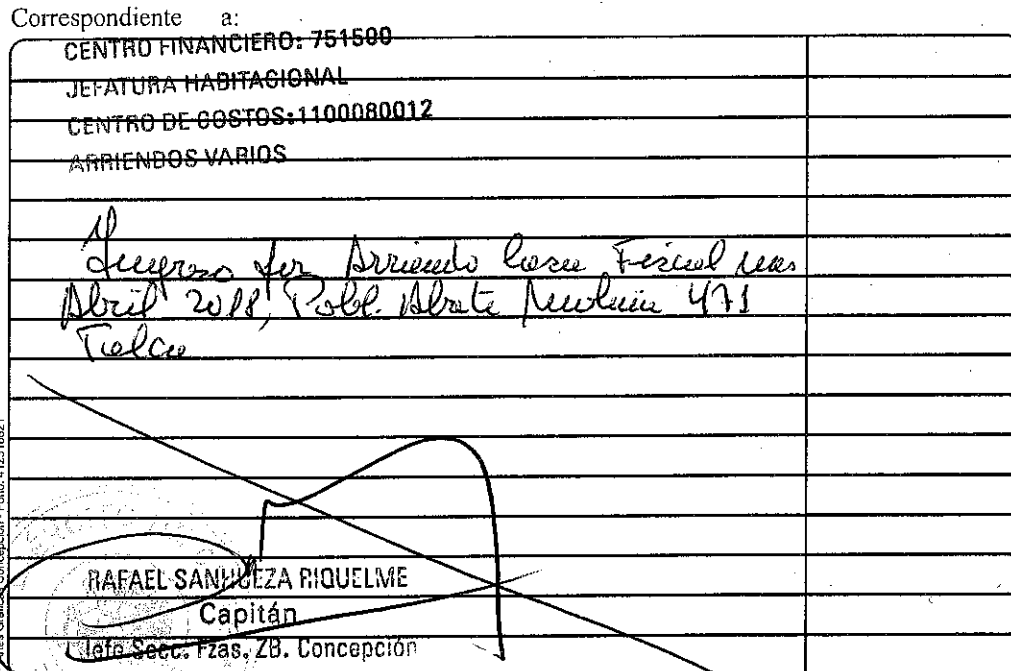 Correspondiente a:
CENTRO FINANCIERO: 751500
JEFATURA HABITACIONAL
CENTRO DE COSTOS:1100080012
ARRIENDOS VARIOS
Ingreso por Arriendo Casa Fiscal mes
Abril 2018, Pobl. Abate Molina 471
Talca
RAFAEL SANHUEZA RIQUELME
Capitán
Jefe Secc. Fzas. ZB. Concepción